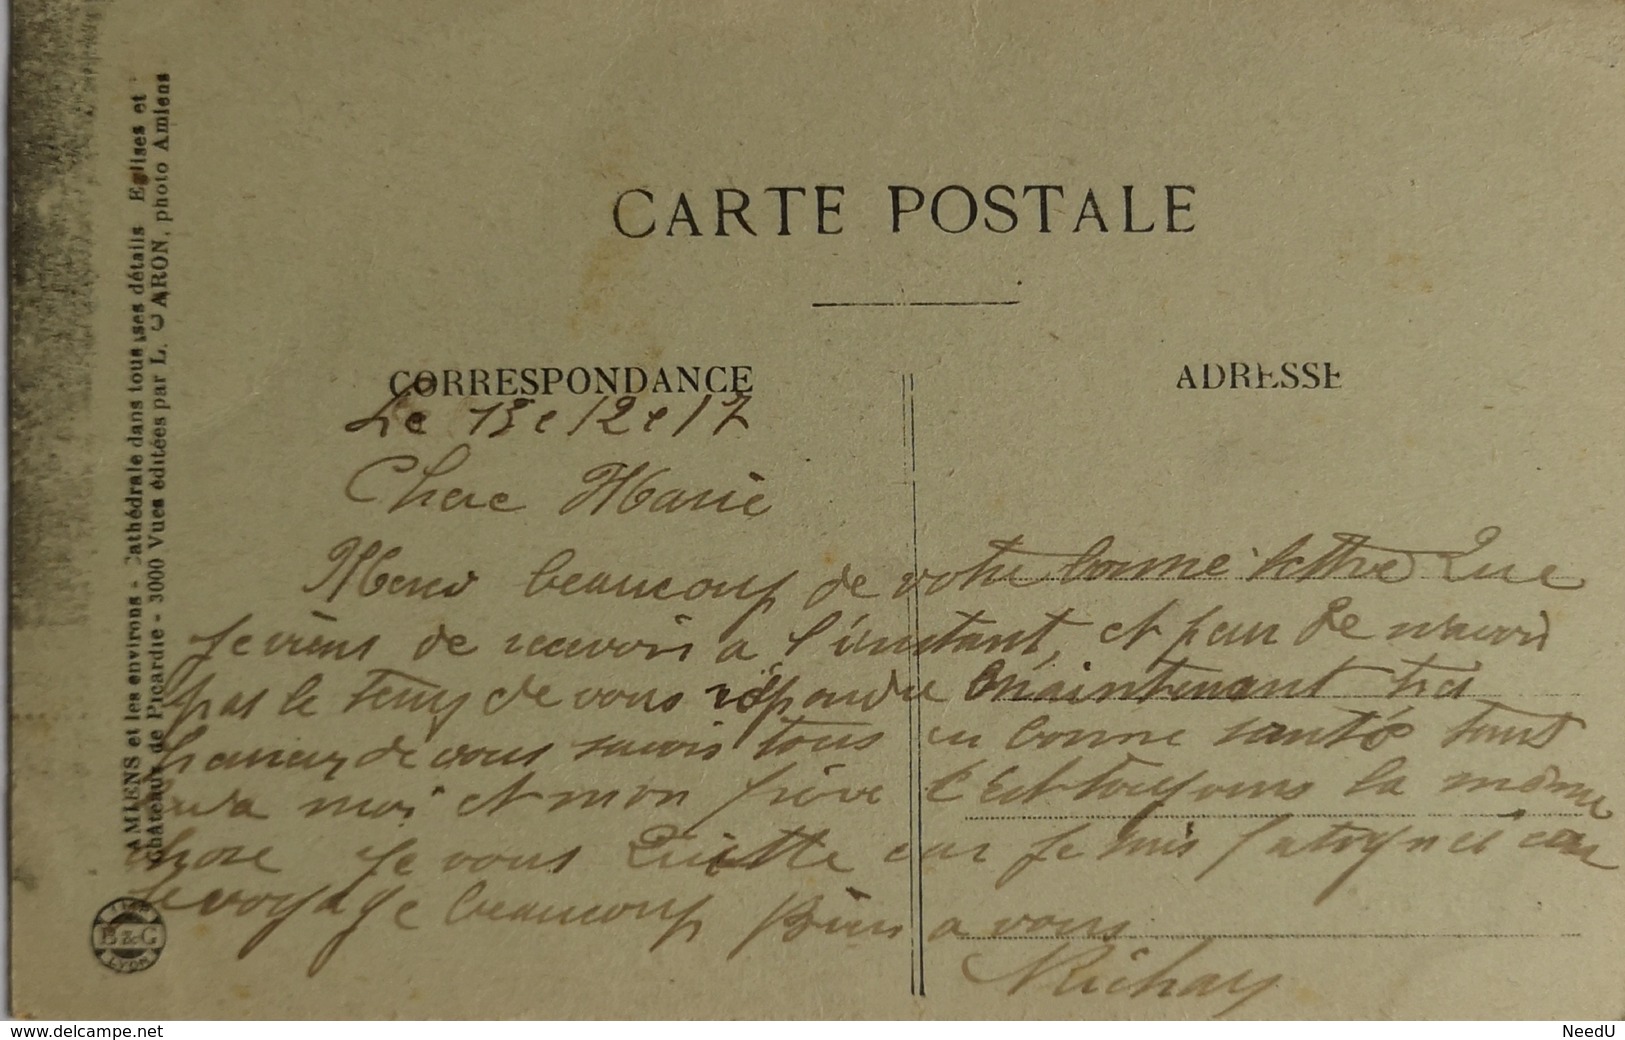 CARTE POSTALE
CORRESPONDANCE
ADRESSE
Le 13 e 12 e 17
Chere Marie
Merci beaucoup de votre bonne lettre Que
je viens de recevoir a l'instant, et peur de n'avoir
pas le temp de vous répondre maintenant tres
heureux de vous savoir tous en bonne santée tant
qu'a moi et mon frère c'est toujours la même
chose je vous Quitte car je suis fatigué car
je voyage beaucoup Bien a vous
AMIENS et les environs - Cathédrale dans tous ses détails Eglises et
Châteaux de Picardie - 3000 Vues éditées par L. CARON, photo Amiens
B & G
LYON
www.delcampe.net
NeedU